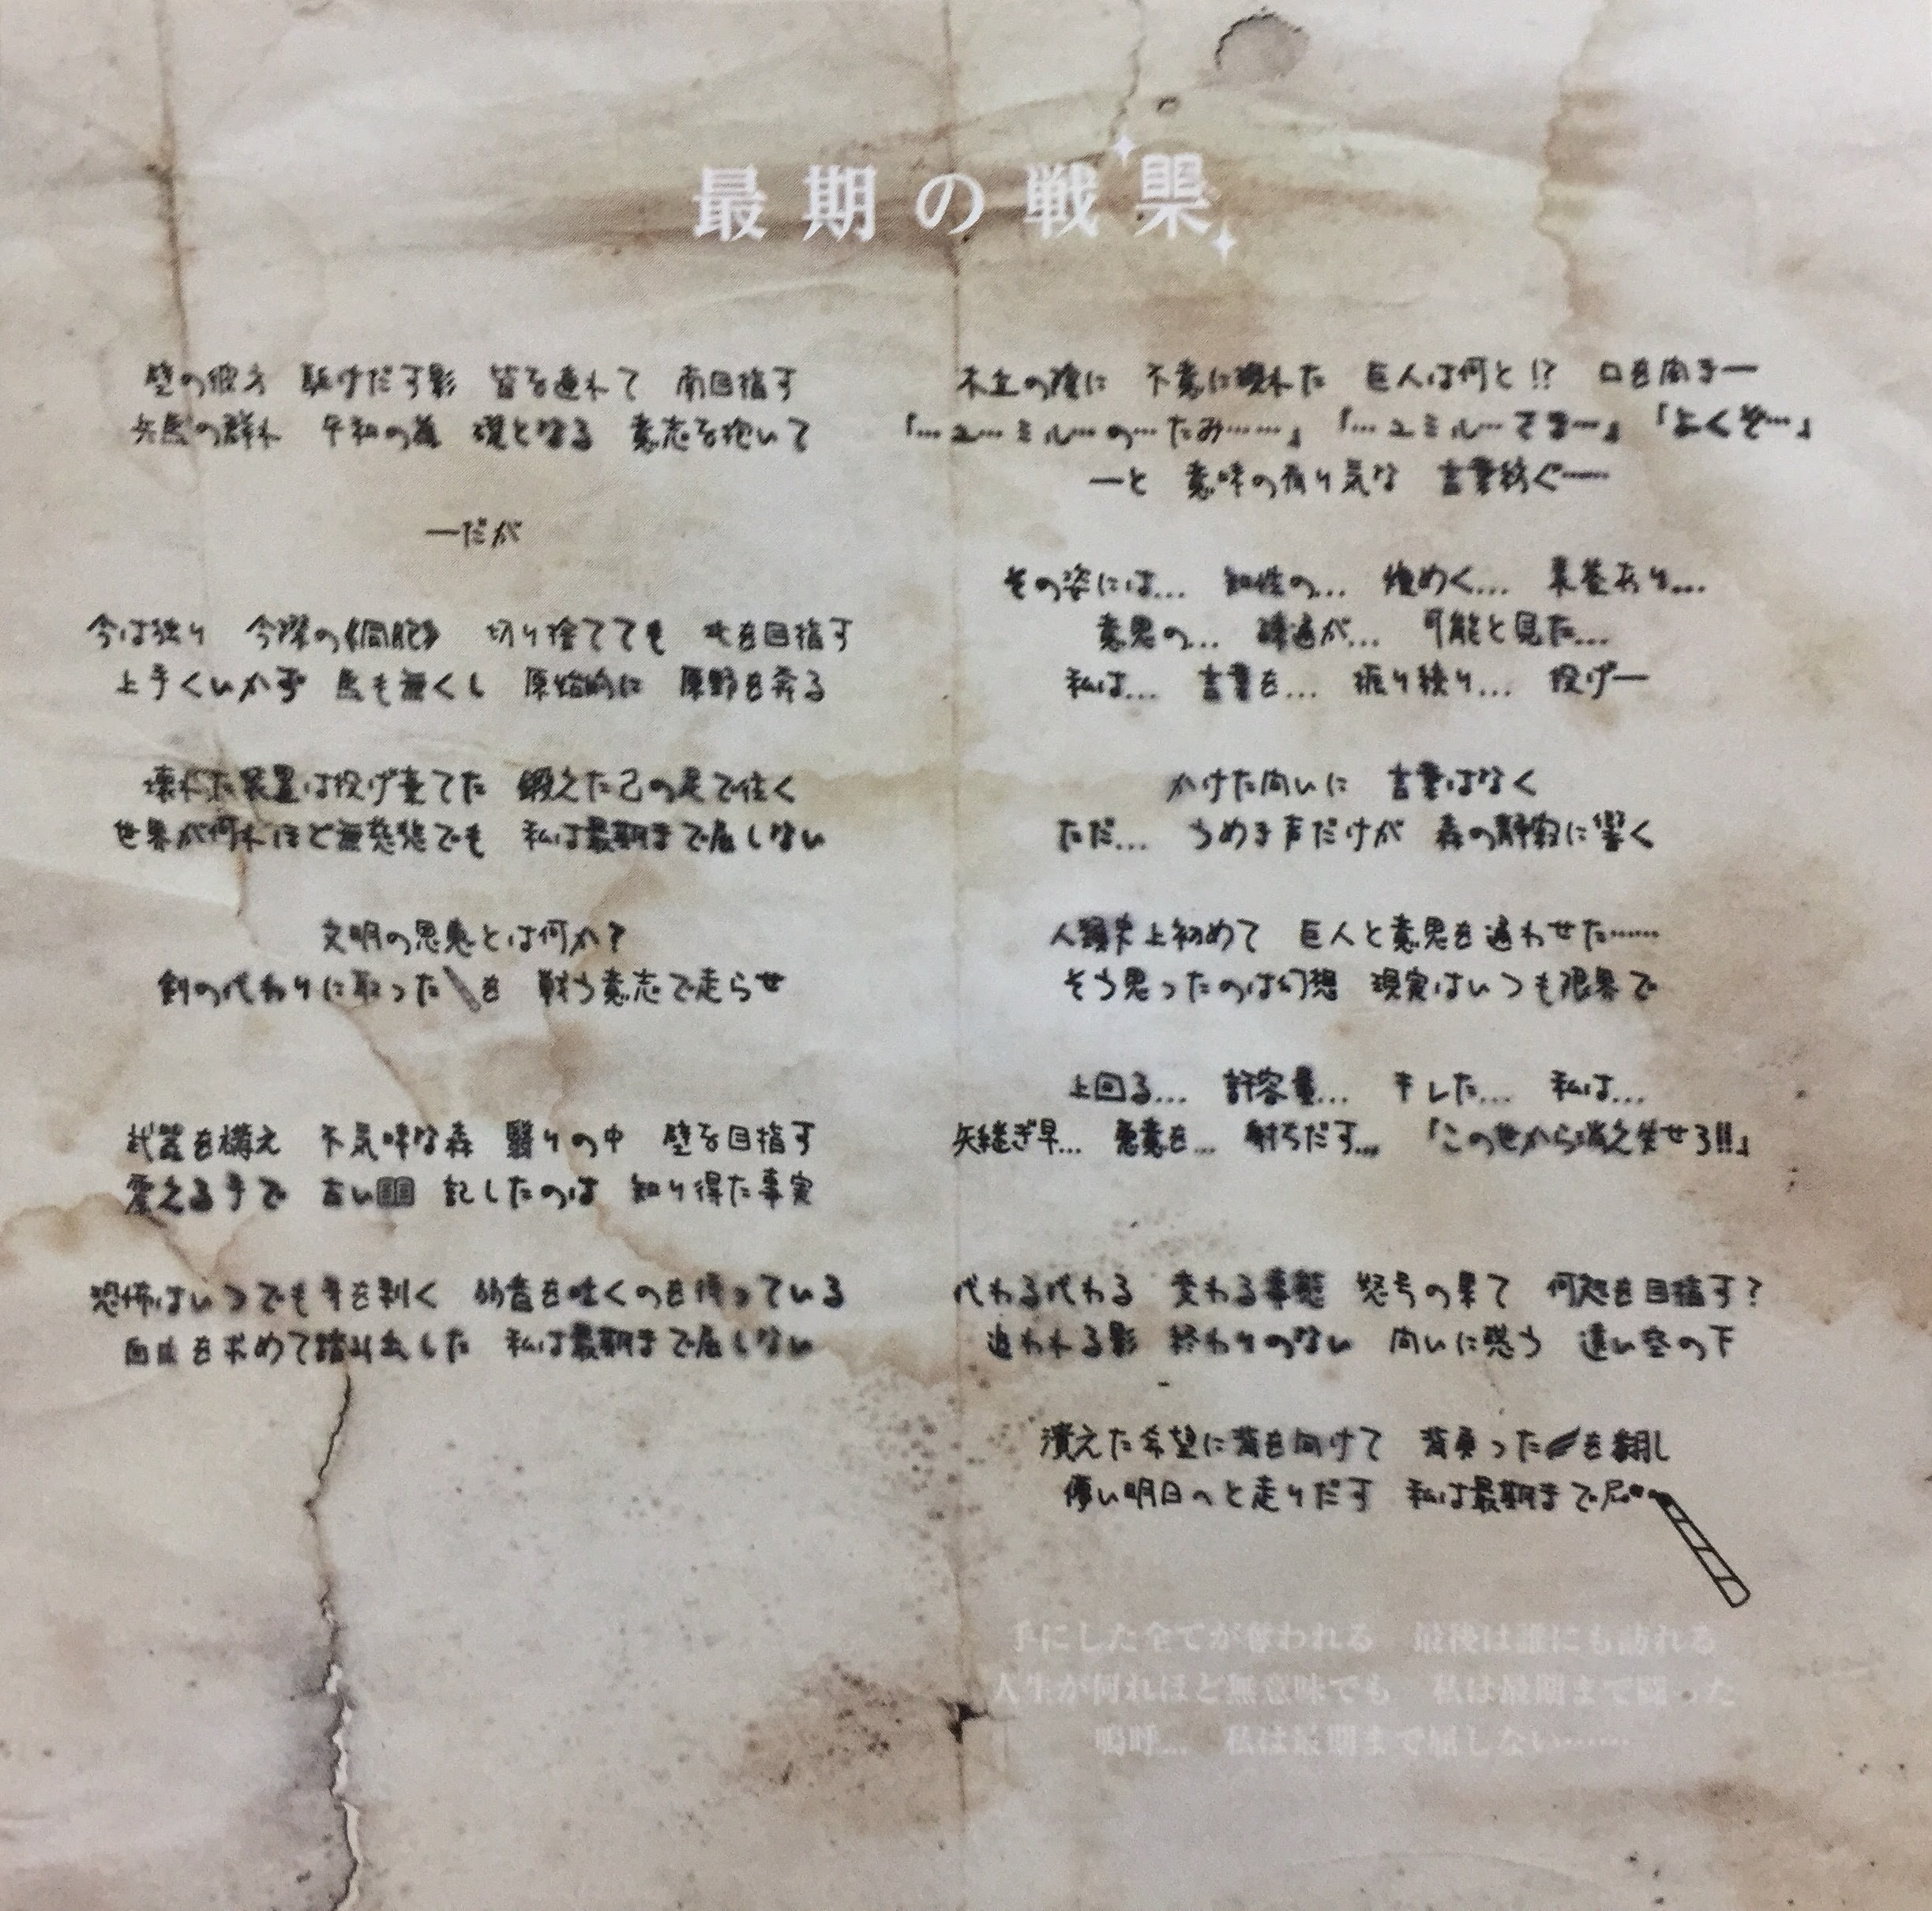 最期の戦果
壁の彼方 駆けだす影 皆を連れて 南目指す
兵馬の群れ 平和の為 礎となる 意志を抱いて
―だが
今は独り 今際の《同胞》 切り捨てても 北を目指す
上手くいかず 馬も無くし 原始的に 原野を奔る
壊れた装置は投げ棄てた 鍛えた己の足で往く
世界が何れほど無慈悲でも 私は最期まで屈しない
文明の恩恵とは何か?
剣の代わりに取った を 戦う意志で走らせ
武器を構え 不気味な森 翳りの中 壁を目指す
震える手で 古い 記したのは 知り得た事実
恐怖はいつでも牙を剥く 弱音を吐くのを待っている
自由を求めて踏み出した 私は最期まで屈しない
木立の陰に 不意に現れた 巨人は何と!? 口を開き―
「…ユ…ミル…の…たみ……」「…ユミル…さま…」「よくぞ…」
―と 意味の有り気な 言葉紡ぐ……
その姿には… 知性の… 煌めく… 素養あり…
意思の… 疎通が… 可能と見た…
私は… 言葉を… 振り絞り… 投げ―
かけた問いに 言葉はなく
ただ… うめき声だけが 森の静寂に響く
人類史上初めて 巨人と意思を通わせた……
そう思ったのは幻想 現実はいつも限界で
上回る… 許容量… キレた… 私は…
矢継ぎ早… 悪意を… 射ちだす… 「この世から消え失せろ!!」
代わる代わる 変わる事態 怒号の果て 何処を目指す?
追われる影 終わりのない 問いに惑う 遠い空の下
潰えた希望に背を向けて 背負った を翻し
儚い明日へと走りだす 私は最期まで
手にした全てが奪われる 最後は誰にも訪れる
人生が何れほど無意味でも 私は最期まで闘った
嗚呼… 私は最期まで屈しない……